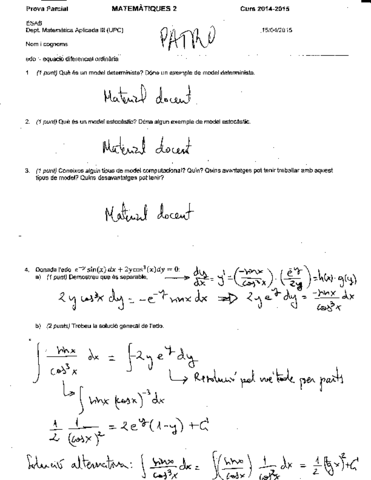 Prova Parcial MATEMÀTIQUES 2 Curs 2014-2015
ESAB
Dept. Matemàtica Aplicada III (UPC) 15/04/2015
PATRÓ
Nom i cognoms
edo :- equació diferencial ordinària
1. (1 punt) Què és un model determinista? Dóna un exemple de model determinista.
Material docent
2. (1 punt) Què és un model estocàstic? Dóna algun exemple de model estocàstic.
Material docent
3. (1 punt) Coneixes algún tipus de model computacional? Quin? Quins avantatges pot tenir treballar amb aquest
tipus de model? Quins desavantatges pot tenir?
Material docent
4. Donada l'edo e^-y sin(x) dx + 2y cos³(x) dy = 0:
a) (1 punt) Demostreu que és separable. → dy/dx = y' = (-sinx/cos³x) · (e^-y/2y) = h(x) · g(y)
2y cos³x dy = -e^-y sinx dx ⇒ 2y e^y dy = -sinx/cos³x dx
b) (2 punts) Trobeu la solució general de l'edo.
∫ sinx/cos³x dx = ∫ -2y e^y dy
↳ Resolució pel mètode per parts
↳ ∫ sinx (cosx)^-3 dx
1/2 1/(cosx)² = 2e^y (1-y) + C
Solució alternativa: ∫ sinx/cos³x dx = ∫ (sinx/cosx) 1/cos²x dx = 1/2 (tgx)² + C